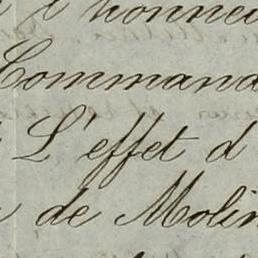 l'honneu
Command
L'effet d
de Molin